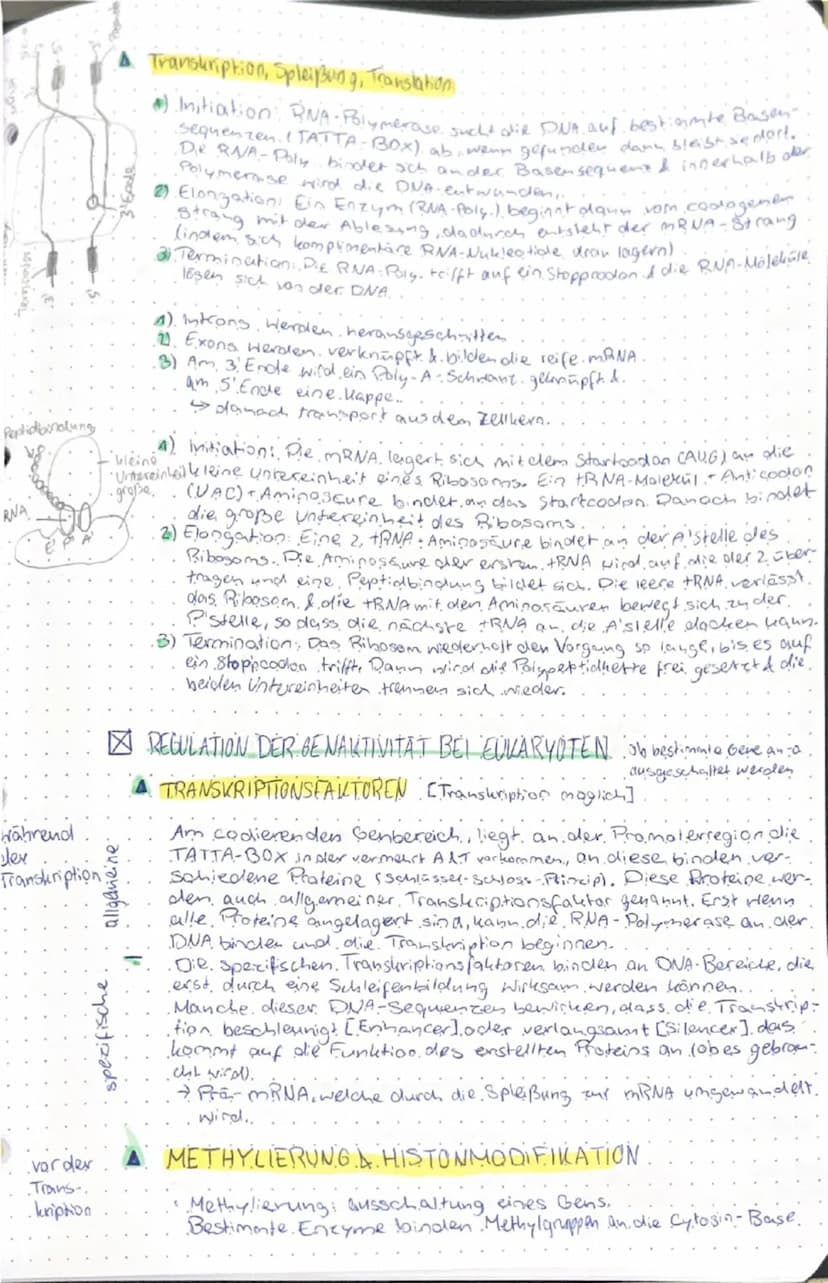 Transkription, Spleißung, Translation
1) Initiation: RNA-Polymerase sucht die DNA auf bestimmte Basen-
sequenzen (TATTA-BOX) ab, wenn gefunden dann bleibt sie dort.
Die RNA-Poly. bindet sich an der Basensequenz & innerhalb der
Polymerase wird die DNA entwunden.
2) Elongation: Ein Enzym (RNA-Poly.) beginnt dann vom codogenen
Strang mit der Ablesung, dadurch entsteht der mRNA-Strang
(indem sich komplimentäre RNA-Nukleotide dran lagern)
3) Termination: Die RNA-Poly. trifft auf ein Stoppcodon & die RNA-Moleküle
lösen sich von der DNA.
3'Ende
1) Introns werden herausgeschnitten
2) Exons werden verknüpft & bilden die reife mRNA.
3) Am 3'Ende wird ein Poly-A-Schwanz geknüpft &
am 5'Ende eine Kappe.
↳ danach transport aus dem Zellkern.
Peptidbindung
kleine
Untereinheit
große
RNA
E' P' A'
1) Initiation: Die mRNA lagert sich mit dem Startcodon (AUG) an die
kleine Untereinheit eines Ribosoms. Ein tRNA-Molekül + Anticodon
(UAC) + Aminosäure bindet an das Startcodon. Danach bindet
die große Untereinheit des Ribosoms.
2) Elongation: Eine 2. tRNA + Aminosäure bindet an der A'Stelle des
Ribosoms. Die Aminosäure der ersten tRNA wird auf die der 2. über-
tragen und eine Peptidbindung bildet sich. Die leere tRNA verlässt
das Ribosom & die tRNA mit den Aminosäuren bewegt sich zu der
P'Stelle, so dass die nächste tRNA an die A'stelle docken kann.
3) Termination: Das Ribosom wiederholt den Vorgang so lange, bis es auf
ein Stoppcodon trifft. Dann wird die Polypeptidkette frei gesetzt & die
beiden Untereinheiten trennen sich wieder.
REGULATION DER GENAKTIVITÄT BEI EUKARYOTEN
ob bestimmte Gene an-o
ausgeschaltet werden
TRANSKRIPTIONSFAKTOREN [Transkription möglich]
während
der
Transkription
allgemeine
Am codierenden Genbereich, liegt an der Promoterregion die
TATTA-BOX in der vermehrt A&T vorkommen, an diese binden ver-
schiedene Proteine (Schlüssel-Schloss-Prinzip). Diese Proteine wer-
den auch allgemeiner Transkriptionsfaktor genannt. Erst wenn
alle Proteine angelagert sind, kann die RNA-Polymerase an der
DNA binden und die Transkription beginnen.
spezifische
Die spezifischen Transkriptionsfaktoren binden an DNA-Bereiche, die
erst durch eine Schleifenbildung wirksam werden können.
Manche dieser DNA-Sequenzen bewirken, dass die Transkrip-
tion beschleunigt [Enhancer] oder verlangsamt [Silencer] das
kommt auf die Funktion des erstellten Proteins an (ob es gebrau-
cht wird).
→ Prä-mRNA, welche durch die Spleißung zur mRNA umgewandelt
wird.
vor der
Trans-
kription
METHYLIERUNG & HISTONMODIFIKATION
· Methylierung: ausschaltung eines Gens.
Bestimmte Enzyme binden Methylgruppen an die Cytosin-Base.